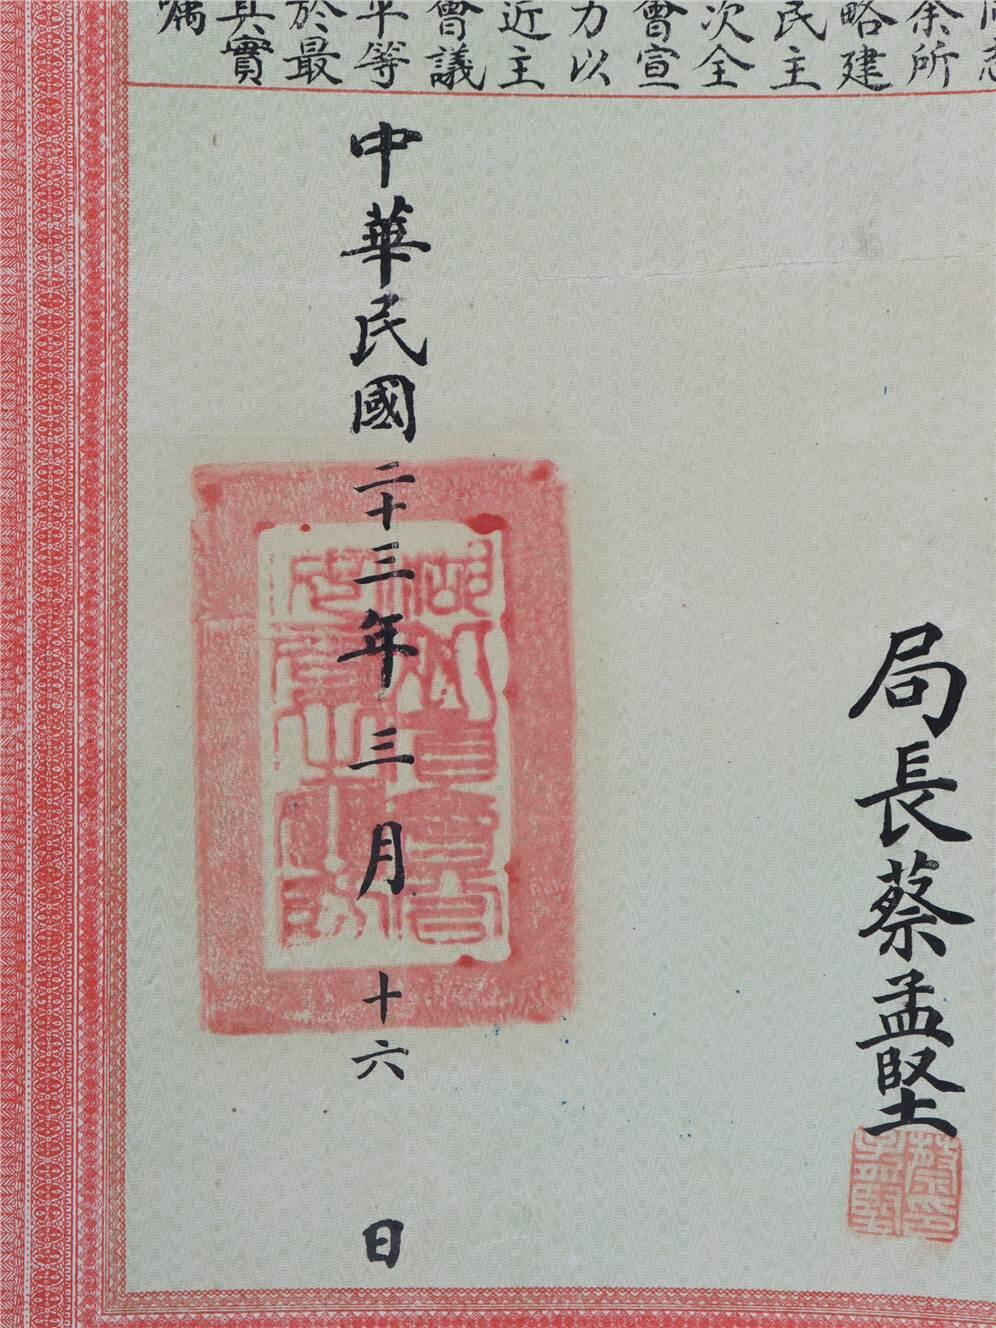 余所
略建
民主
次全
會宣
力以
近主
會議
平等
於最
其實
囑
局長蔡孟堅
蔡印
孟堅
中華民國二十三年三月十六日